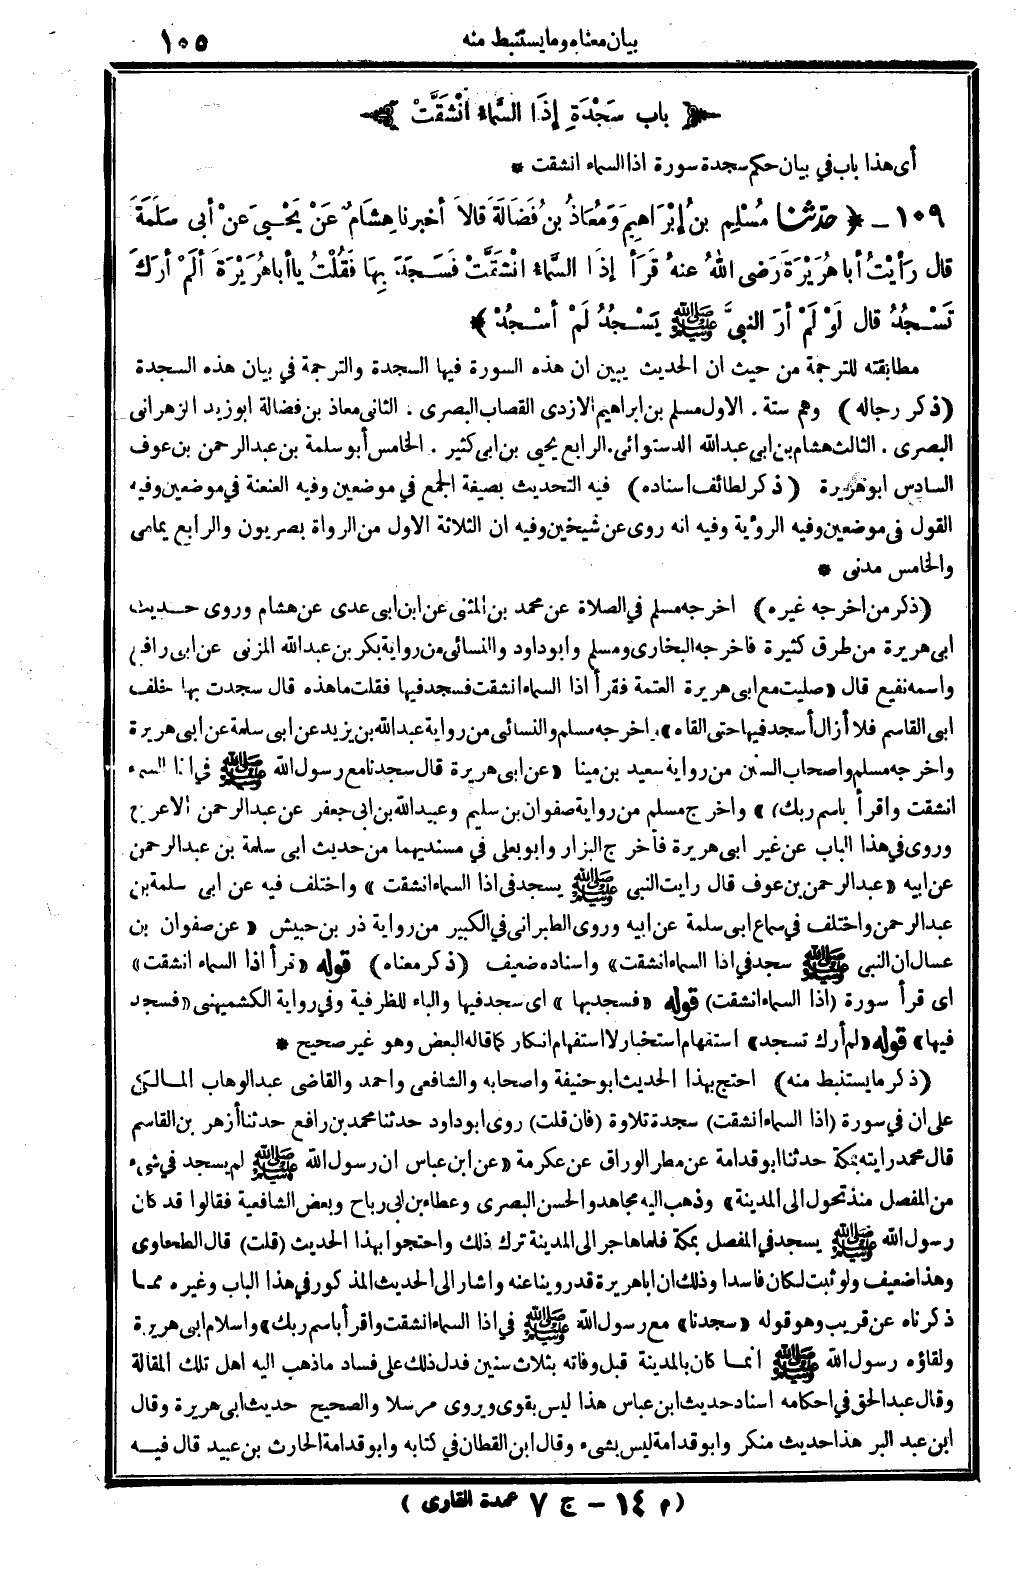 بيان معناه وما يستنبط منه ١٠٥
﴿ باب سَجْدَةِ إِذَا السَّمَاءُ انْشَقَّتْ ﴾
أى هذا باب في بيان حكم سجدة سورة اذا السماء انشقت *
١٠٩ ـ ﴿ حدّثنا مُسْلِمِ بنُ إبْرَاهِيمَ وَمُعَاذُ بنُ فَضَالَةَ قالاَ أخبرنا هِشَامٌ عَنْ يَحْيىَ عَنْ أبى سَلَمَةَ
قال رَأيْتُ أبا هُرَيْرَةَ رَضى اللهُ عنهُ قَرَأَ إذَا السَّمَاءُ انْشَقَّتْ فَسَجَدَ بِهَا فَقُلْتُ يا أبا هُرَيْرَةَ ألَمْ أرَكَ
تَسْجُدُ قال لَوْ لَمْ أرَ النبيَّ ﷺ يَسْجُدُ لَمْ أسْجُدْ ﴾
مطابقته للترجمة من حيث ان الحديث يبين ان هذه السورة فيها السجدة والترجمة في بيان هذه السجدة
(ذكر رجاله) وهم ستة . الاول مسلم بن ابراهيم الازدى القصاب البصرى . الثانى معاذ بن فضالة ابو زيد الزهرانى
البصرى . الثالث هشام بن ابى عبد الله الدستوائى . الرابع يحيى بن ابى كثير . الخامس أبو سلمة بن عبد الرحمن بن عوف
السادس ابو هريرة (ذكر لطائف اسناده) فيه التحديث بصيغة الجمع في موضعين وفيه العنعنة في موضعين وفيه
القول فى موضعين وفيه الرؤية وفيه انه روى عن شيخين وفيه ان الثلاثة الاول من الرواة بصريون والرابع يمامى
والخامس مدنى *
(ذكر من اخرجه غيره) اخرجه مسلم في الصلاة عن محمد بن المثنى عن ابن ابى عدى عن هشام وروى حديث
ابى هريرة من طرق كثيرة فاخرجه البخارى ومسلم وابو داود والنسائى من رواية بكر بن عبد الله المزنى عن ابى رافع
واسمه نفيع قال «صليت مع ابى هريرة العتمة فقرأ اذا السماء انشقت فسجد فيها فقلت ما هذه قال سجدت بها خلف
ابى القاسم فلا أزال أسجد فيها حتى القاه» واخرجه مسلم والنسائى من رواية عبد الله بن يزيد عن ابى سلمة عن ابى هريرة
واخرجه مسلم واصحاب السنن من رواية سعيد بن مينا «عن ابى هريرة قال سجدنا مع رسول الله ﷺ في اذا السماء
انشقت واقرأ باسم ربك» واخرج مسلم من رواية صفوان بن سليم وعبيد الله بن ابى جعفر عن عبد الرحمن الاعرج
وروى في هذا الباب عن غير ابى هريرة فأخرج البزار وابو يعلى في مسنديهما من حديث ابى سلمة بن عبد الرحمن
عن ابيه «عبد الرحمن بن عوف قال رايت النبى ﷺ يسجد فى اذا السماء انشقت» واختلف فيه عن ابى سلمة بن
عبد الرحمن واختلف في سماع ابى سلمة عن ابيه وروى الطبرانى في الكبير من رواية ذر بن حبيش «عن صفوان بن
عسال ان النبى ﷺ سجد في اذا السماء انشقت» واسناده ضعيف (ذكر معناه) قوله «قرأ اذا السماء انشقت»
اى قرأ سورة (اذا السماء انشقت) قوله «فسجد بها» اى سجد فيها والباء للظرفية وفي رواية الكشميهنى «فسجد
فيها» قوله «لم أرك تسجد» استفهام استخبار لا استفهام انكار كما قاله البعض وهو غير صحيح *
(ذكر ما يستنبط منه) احتج بهذا الحديث ابو حنيفة واصحابه والشافعى واحمد والقاضى عبد الوهاب المالكى
على ان في سورة (اذا السماء انشقت) سجدة تلاوة (فان قلت) روى ابو داود حدثنا محمد بن رافع حدثنا أزهر بن القاسم
قال محمد رايته بمكة حدثنا ابو قدامة عن مطر الوراق عن عكرمة «عن ابن عباس ان رسول الله ﷺ لم يسجد في شىء
من المفصل منذ تحول الى المدينة» وذهب اليه مجاهد والحسن البصرى وعطاء بن ابى رباح وبعض الشافعية فقالوا قد كان
رسول الله ﷺ يسجد في المفصل بمكة فلما هاجر الى المدينة ترك ذلك واحتجوا بهذا الحديث (قلت) قال الطحاوى
وهذا ضعيف ولو ثبت لكان فاسدا وذلك ان ابا هريرة قد روينا عنه واشار الى الحديث المذكور في هذا الباب وغيره مما
ذكرناه عن قريب وهو قوله «سجدنا» مع رسول الله ﷺ في اذا السماء انشقت واقرأ باسم ربك» واسلام ابى هريرة
ولقاؤه رسول الله ﷺ انما كان بالمدينة قبل وفاته بثلاث سنين فدل ذلك على فساد ما ذهب اليه اهل تلك المقالة
وقال عبد الحق في احكامه اسناد حديث ابن عباس هذا ليس بقوى ويروى مرسلا والصحيح حديث ابى هريرة وقال
ابن عبد البر هذا حديث منكر وابو قدامة ليس بشىء وقال ابن القطان في كتابه وابو قدامة الحارث بن عبيد قال فيه
( م ١٤ ـ ج ٧ عمدة القارى )